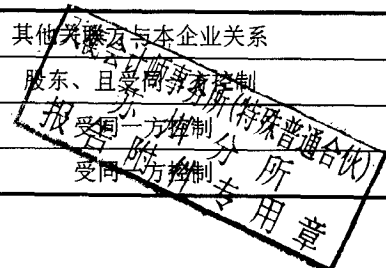 其他关联方与本企业关系
股东、且受同一方控制
受同一方控制
受同一方控制
会计师事务所(特殊普通合伙)
苏州分所
报告附件专用章